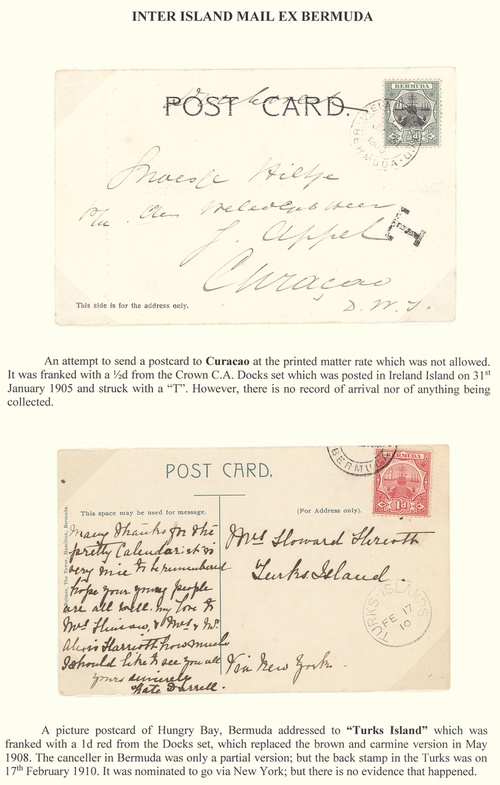 INTER ISLAND MAIL EX BERMUDA
POST CARD.
BERMUDA
Curaçao
D. W. I.
T
This side is for the address only.
An attempt to send a postcard to Curacao at the printed matter rate which was not allowed.
It was franked with a ½d from the Crown C.A. Docks set which was posted in Ireland Island on 31st
January 1905 and struck with a “T”. However, there is no record of arrival nor of anything being
collected.
BERMUDA
POST CARD.
BERMUDA
1d
This space may be used for message.
(For Address only).
Many thanks for the
pretty Calendar it is
very nice to be remembered
hope your young people
are all well. my love to
Mrs & Mr
how much
I should like to see you all
yours sincerely
Kate Darrell.
Mrs Howard
Turks Island
Via New York.
TURKS ISLANDS
FE 17
10
A picture postcard of Hungry Bay, Bermuda addressed to “Turks Island” which was
franked with a 1d red from the Docks set, which replaced the brown and carmine version in May
1908. The canceller in Bermuda was only a partial version; but the back stamp in the Turks was on
17th February 1910. It was nominated to go via New York; but there is no evidence that happened.